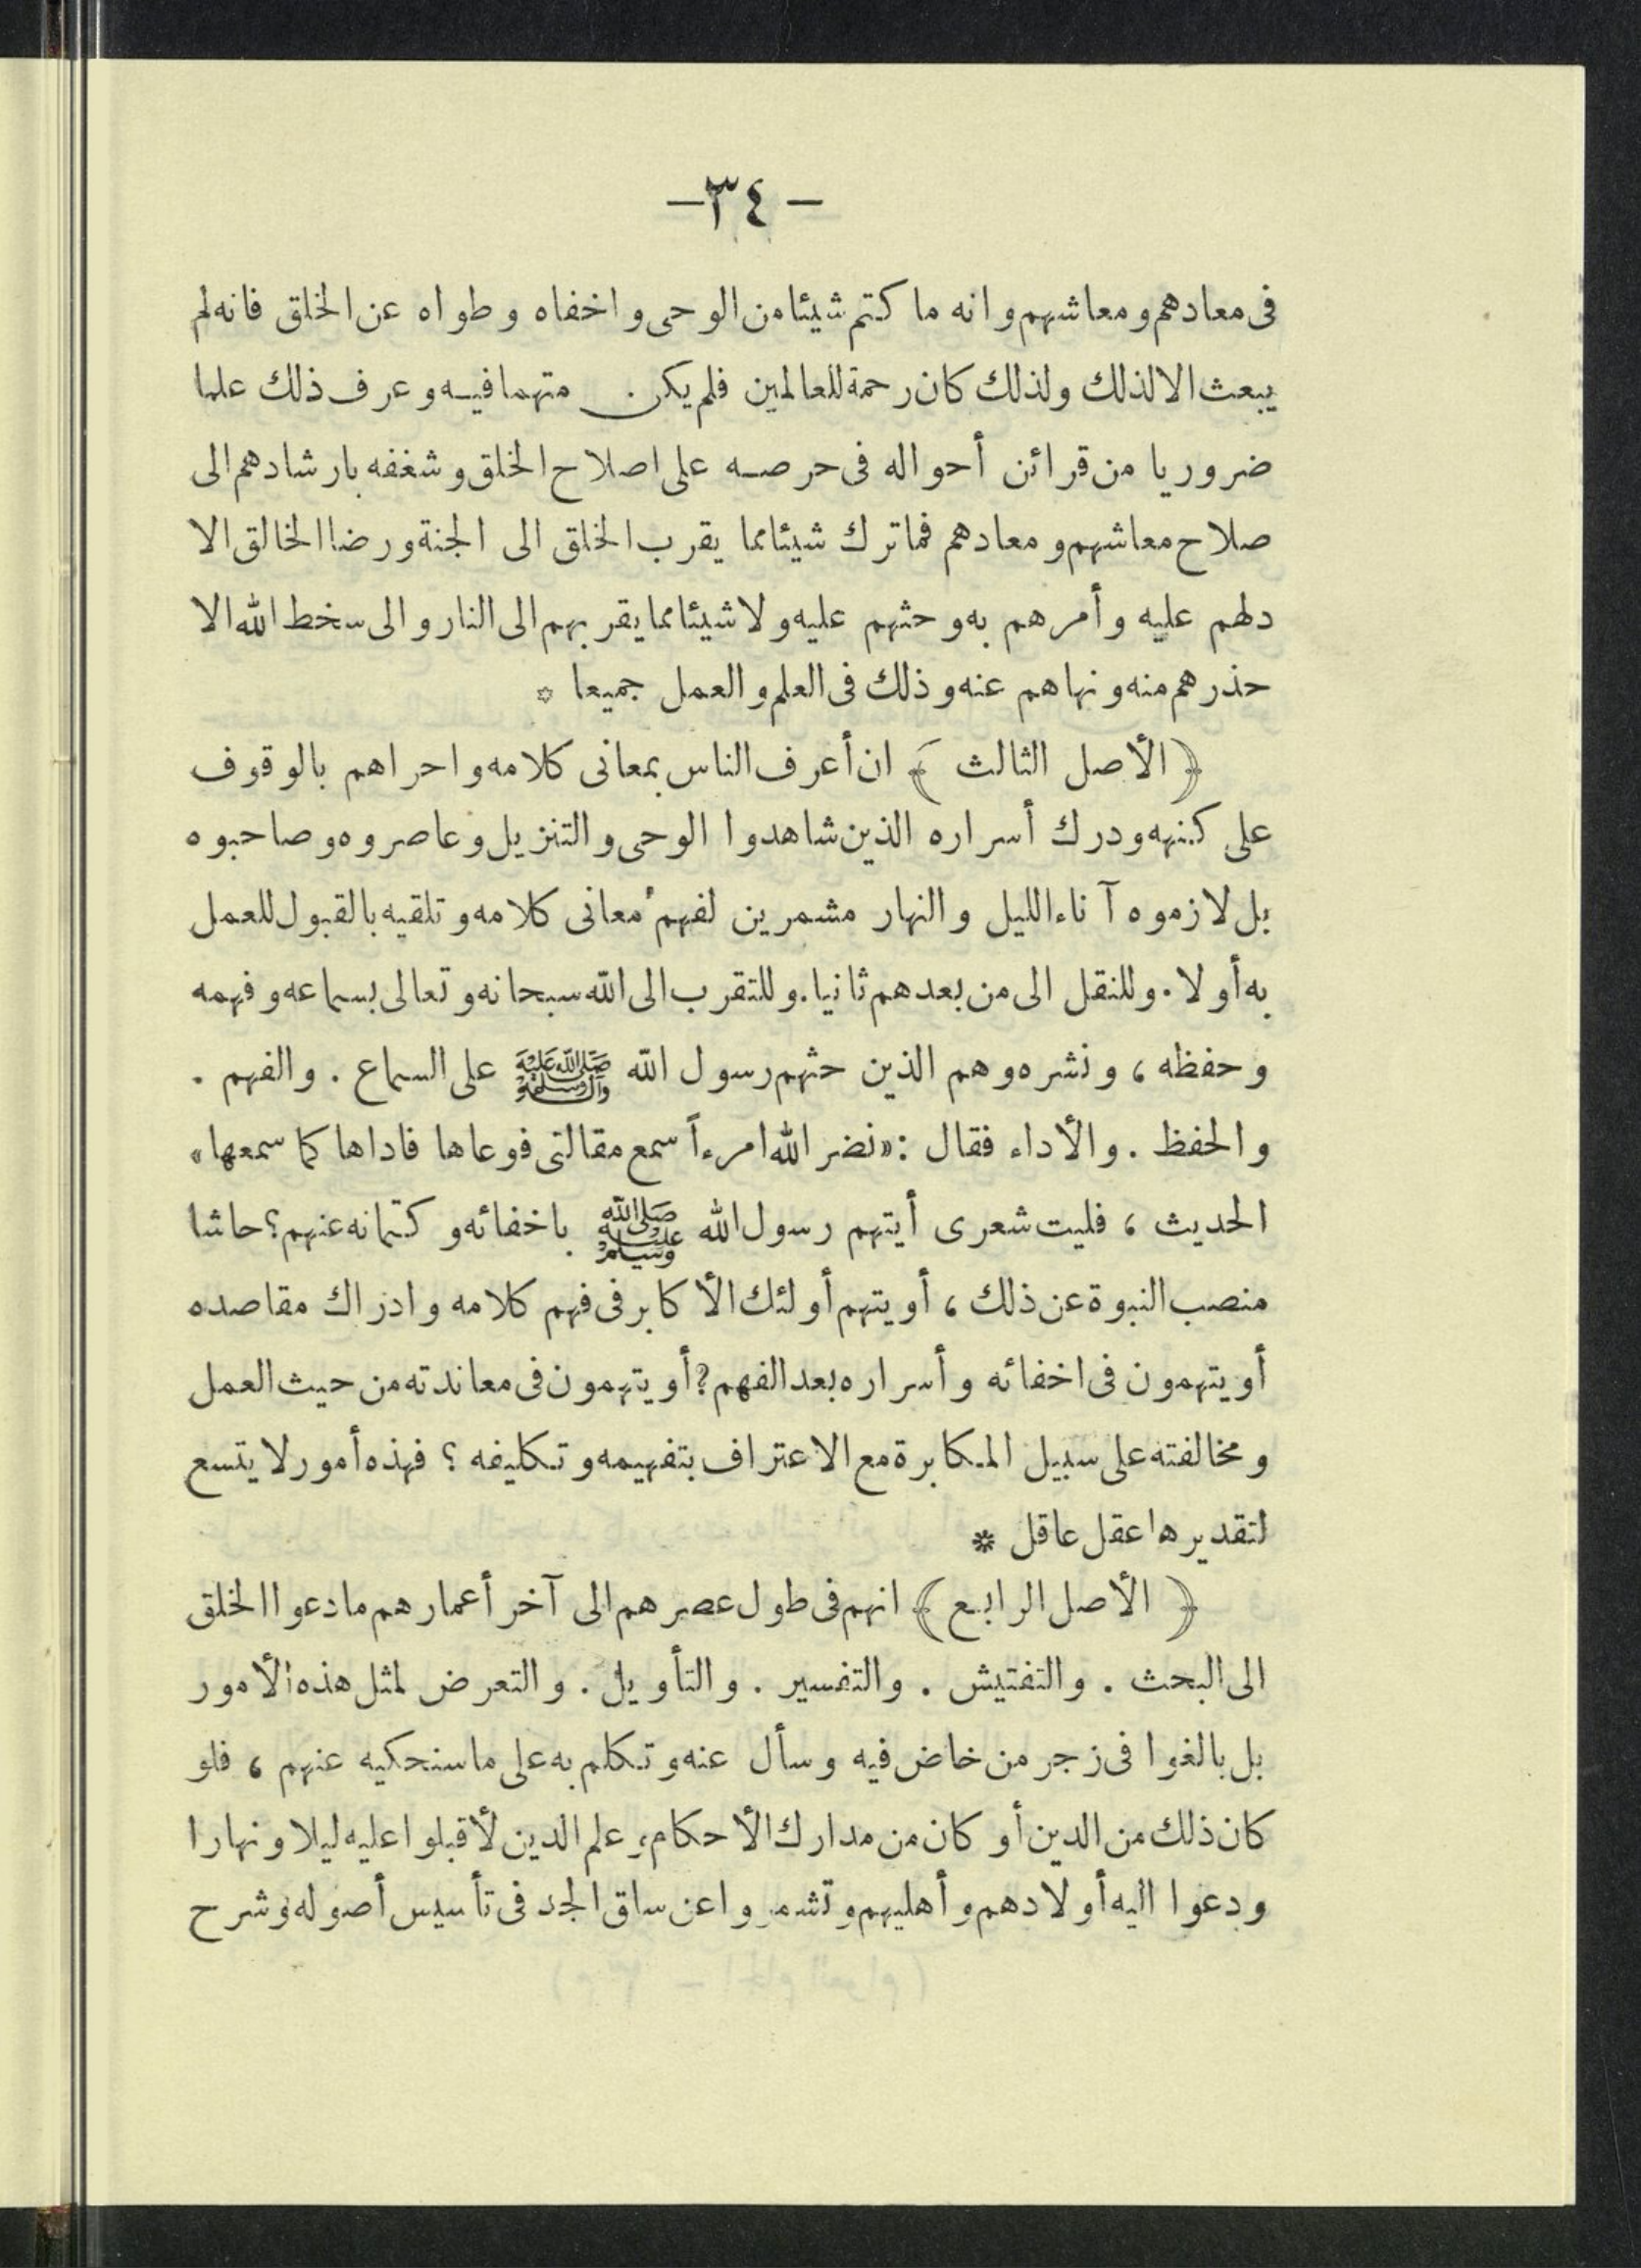 — ٣٤ —
فى معادهم ومعاشهم وانه ما كتم شيئا من الوحى واخفاه وطواه عن الخلق فانه لم
يبعث الا لذلك ولذلك كان رحمة للعالمين فلم يكن متهما فيه وعرف ذلك علما
ضروريا من قرائن أحواله فى حرصه على اصلاح الخلق وشغفه بارشادهم الى
صلاح معاشهم ومعادهم فما ترك شيئا مما يقرب الخلق الى الجنة ورضا الخالق الا
دلهم عليه وأمرهم به وحثهم عليه ولا شيئا مما يقربهم الى النار والى سخط الله الا
حذرهم منه ونهاهم عنه وذلك فى العلم والعمل جميعا *
﴿ الأصل الثالث ﴾ ان أعرف الناس بمعانى كلامه واحراهم بالوقوف
على كنهه ودرك أسراره الذين شاهدوا الوحى والتنزيل وعاصروه وصاحبوه
بل لازموه آناء الليل والنهار مشمرين لفهم معانى كلامه وتلقيه بالقبول للعمل
به أولا . وللنقل الى من بعدهم ثانيا . وللتقرب الى الله سبحانه وتعالى بسماعه وفهمه
وحفظه ، ونشره وهم الذين حثهم رسول الله صَلَّى اللهُ عَلَيْهِ وَآلِهِ وَسَلَّمَ على السماع . والفهم .
والحفظ . والأداء فقال : «نضر الله امرءاً سمع مقالتى فوعاها فاداها كما سمعها»
الحديث ، فليت شعرى أيتهم رسول الله ﷺ باخفائه وكتمانه عنهم ؟ حاشا
منصب النبوة عن ذلك ، أو يتهم أولئك الأكابر فى فهم كلامه وادراك مقاصده
أو يتهمون فى اخفائه وأسراره بعد الفهم ? أو يتهمون فى معاندته من حيث العمل
ومخالفته على سبيل المكابرة مع الاعتراف بتفهيمه وتكليفه ؟ فهذه أمور لا يتسع
لتقديرها عقل عاقل *
﴿ الأصل الرابع ﴾ انهم فى طول عصرهم الى آخر أعمارهم ما دعوا الخلق
الى البحث . والتفتيش . والتفسير . والتأويل . والتعرض لمثل هذه الأمور
بل بالغوا فى زجر من خاض فيه وسأل عنه وتكلم به على ما سنحكيه عنهم ، فلو
كان ذلك من الدين أو كان من مدارك الأحكام وعلم الدين لأقبلوا عليه ليلا ونهارا
ودعوا اليه أولادهم وأهليهم وتشمروا عن ساق الجد فى تأسيس أصوله وشرح